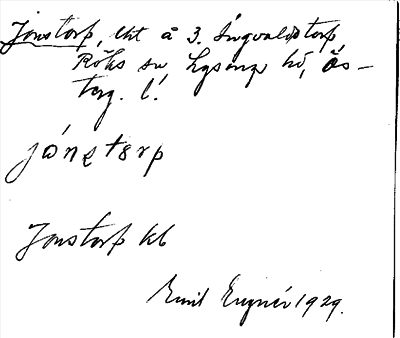 Jonstorp, lht å 3. Ingvaldstorp
Röks sn, Lysings hd, Ös-
terg. l.
jónstɐrp
Jonstorp kb
Emil Eugnér 1929.